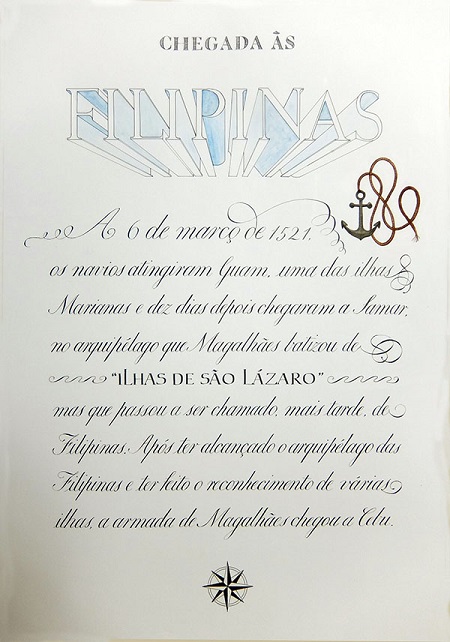 CHEGADA ÀS
FILIPINAS
A 6 de março de 1521,
os navios atingiram Guam, uma das ilhas
Marianas e dez dias depois chegaram a Samar,
no arquipélago que Magalhães batizou de
"ILHAS DE SÃO LÁZARO"
mas que passou a ser chamado, mais tarde, de
Filipinas. Após ter alcançado o arquipélago das
Filipinas e ter feito o reconhecimento de várias
ilhas, a armada de Magalhães chegou a Cebu.